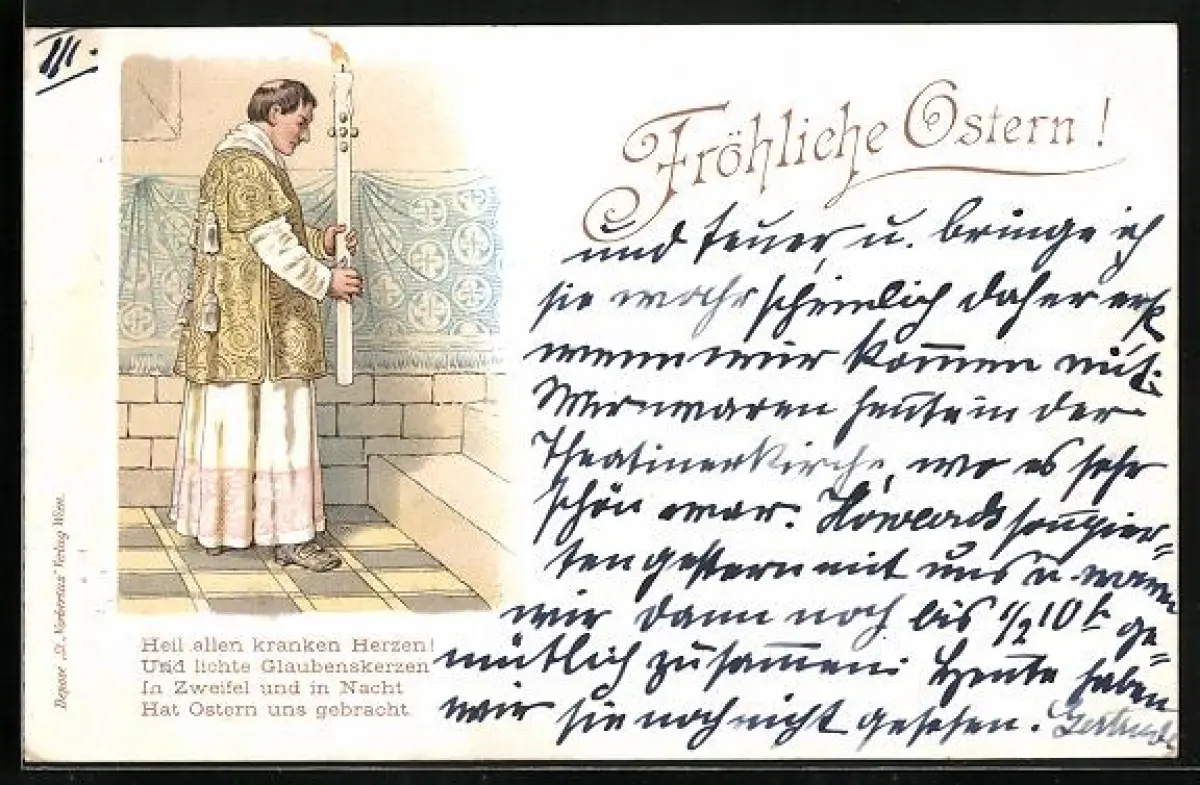 III.
Fröhliche Ostern!
und teuer, u. bringe ich
sie wahrscheinlich daher erst
wenn wir kommen mit.
Wir waren heute in der
Theatinerkirche, wo es sehr
schön war. soupier=
ten gestern mit uns u. waren
wir dann noch bis 1/2 10 h ge=
mütlich zusammen. Heute haben
wir sie noch nicht gesehen. Gertrude
Heil allen kranken Herzen!
Und lichte Glaubenskerzen
In Zweifel und in Nacht
Hat Ostern uns gebracht.
Depose „St. Norbertus" Verlag Wien.